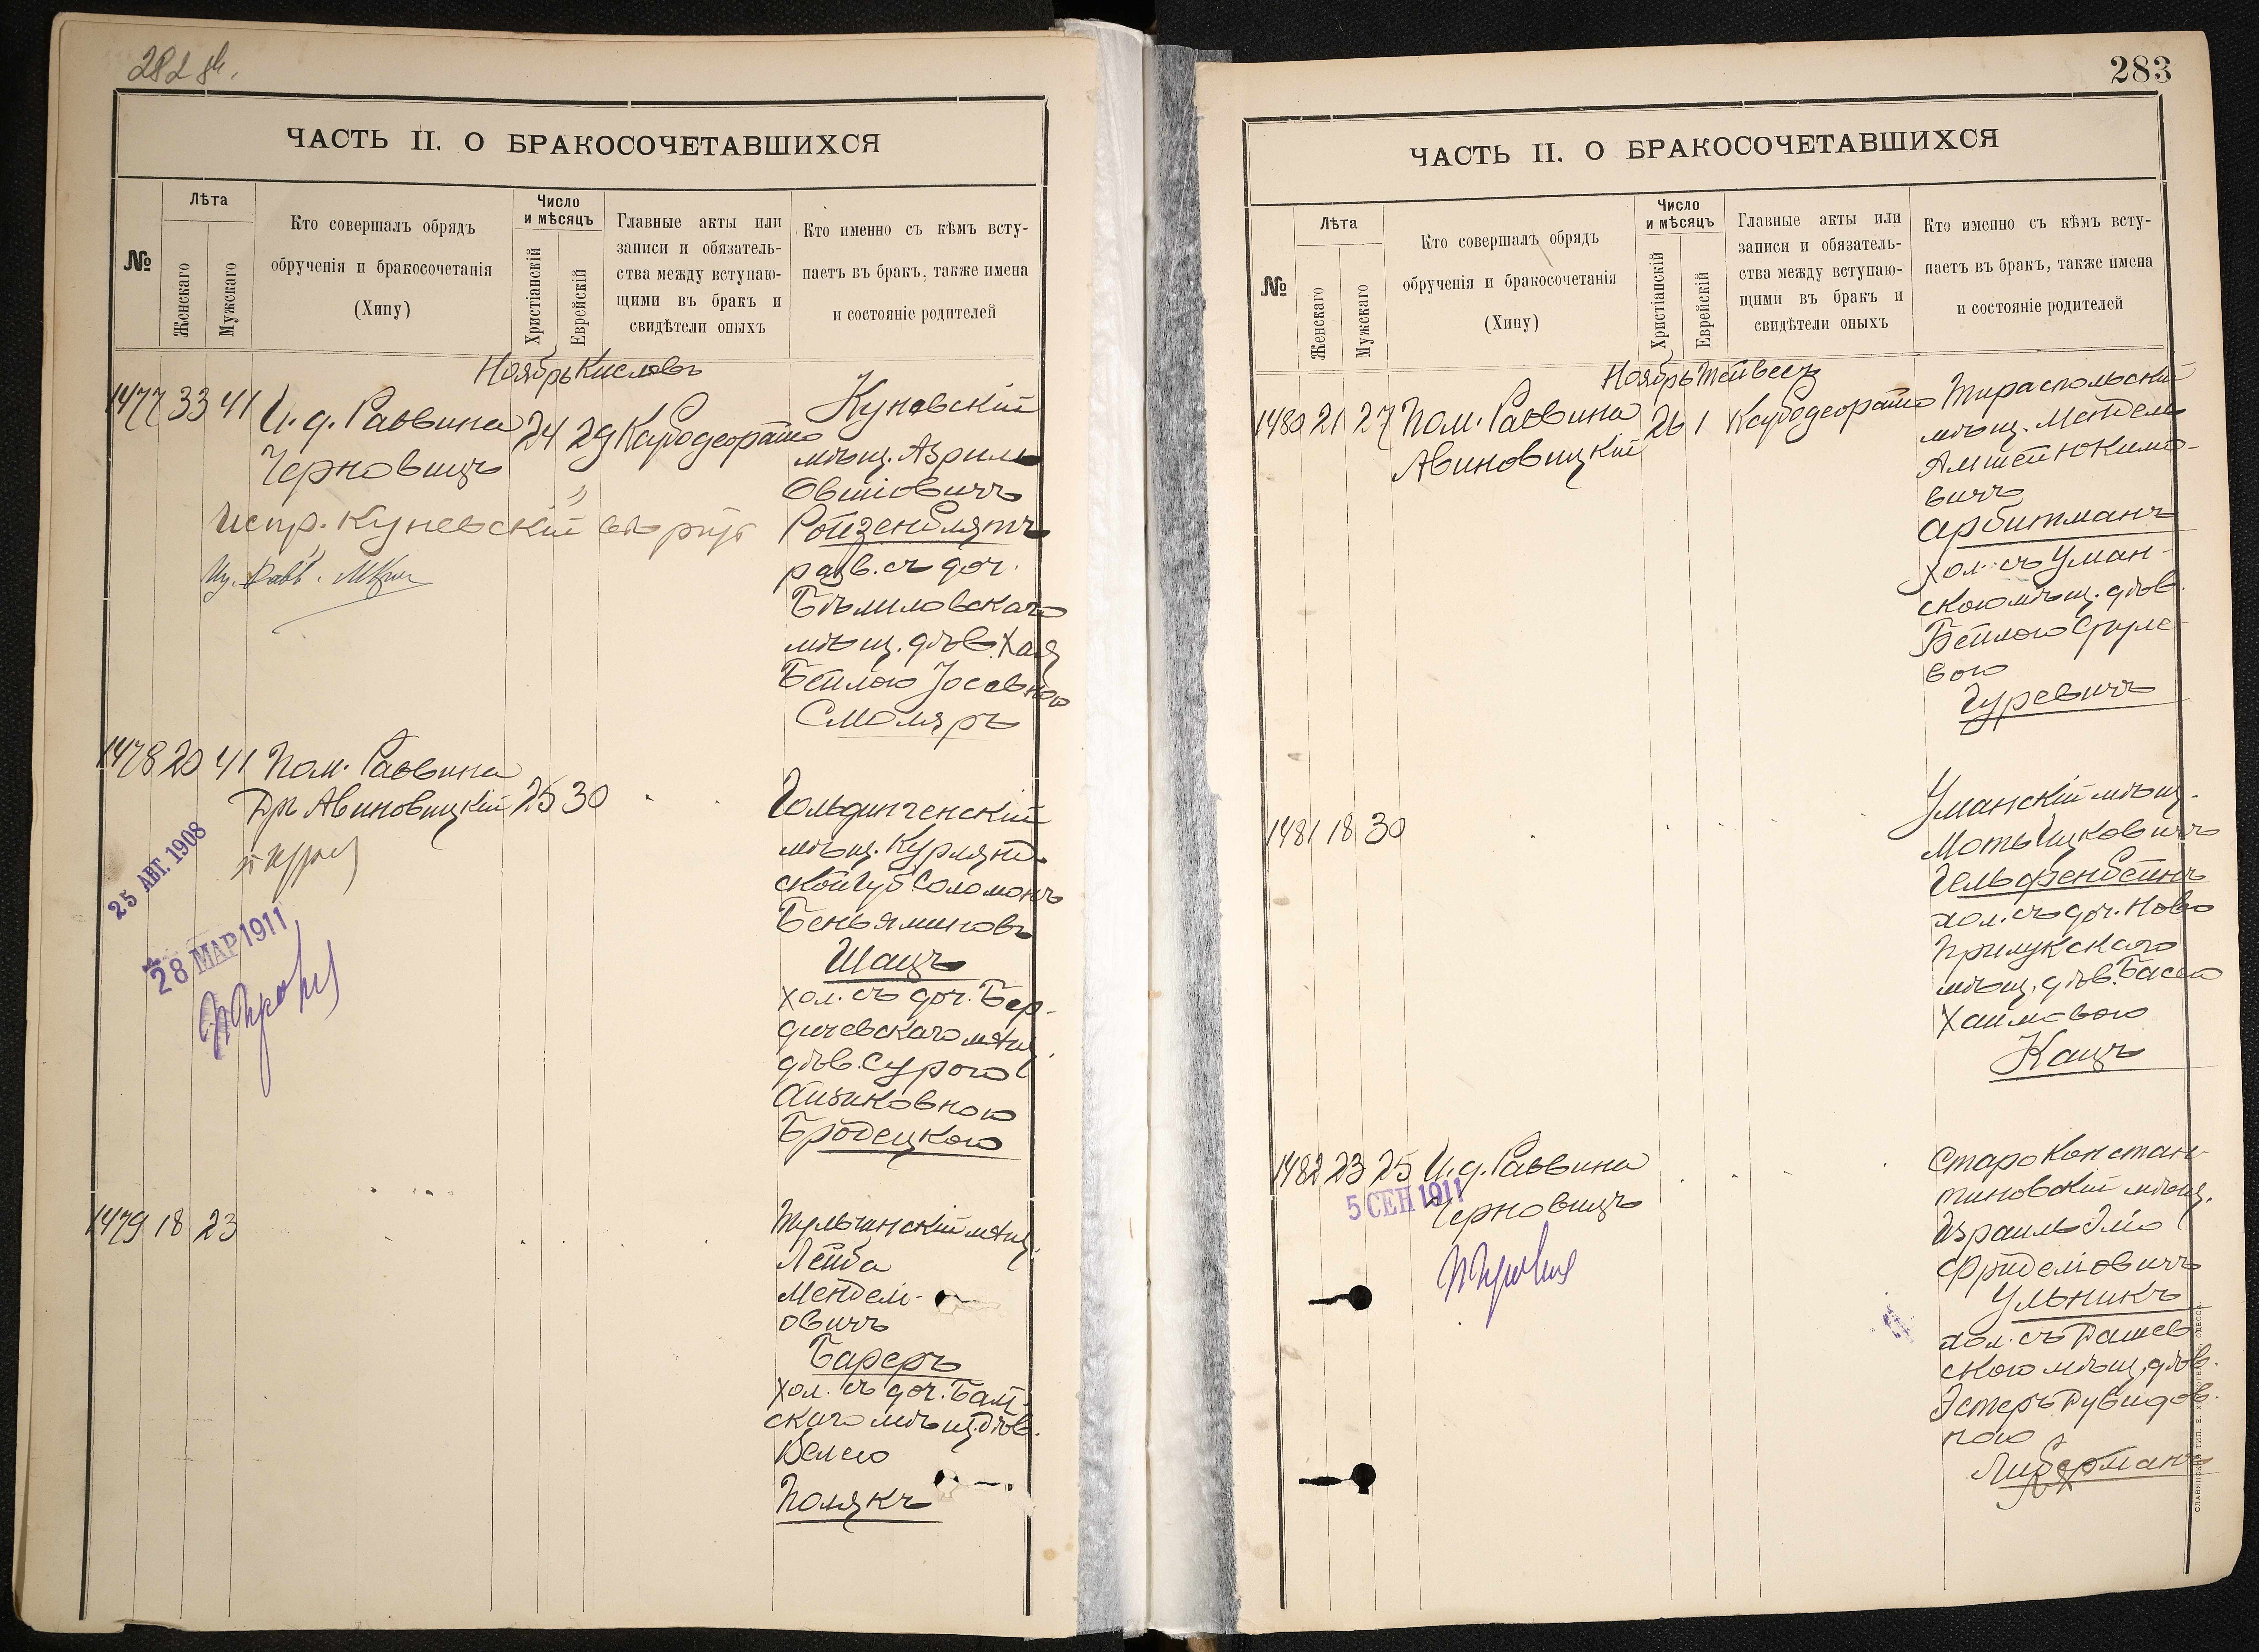 282 об.
ЧАСТЬ II. О БРАКОСОЧЕТАВШИХСЯ
№
Лѣта
Женскаго
Мужскаго
Кто совершалъ обрядъ
обрученія и бракосочетанія
(Хипу)
Число
и мѣсяцъ
Христіанскій
Еврейскій
Главные акты или
записи и обязатель-
ства между вступаю-
щими въ бракъ и
свидѣтели оныхъ
Кто именно съ кѣмъ всту-
паетъ въ бракъ, также имена
и состояніе родителей
Ноябрь Кислевъ
1477 33 41 И. д. Раввина 24 29
Черновицъ
Куневскій
мѣщ. Азриль
Овшіовичъ
Ройзенблятъ
разв. съ доч.
Бѣлиловскаго
мѣщ. дѣв. Хая
Бейлою Іосевною
Смоляръ
Испр. Куневскій
1478 20 41 Пом. Раввина
Дръ Авиновицкій 25 30
25 АВГ. 1908
28 МАР 1911
Гольдингенскій
мѣщ. Курлянд.
ской губ. Соломонъ
Беньяминовъ
Шацъ
хол. съ доч. Бер-
дичевскаго мѣщ.
дѣв. Сурою
Айзиковною
Бродецкою
1479 18 23
Тульчинскій мѣщ.
Лейба
Менделі-
овичъ
Бареръ
хол. съ доч. Балт-
скаго мѣщ. дѣв.
Велею
Полякъ
283
ЧАСТЬ II. О БРАКОСОЧЕТАВШИХСЯ
№
Лѣта
Женскаго
Мужскаго
Кто совершалъ обрядъ
обрученія и бракосочетанія
(Хипу)
Число
и мѣсяцъ
Христіанскій
Еврейскій
Главные акты или
записи и обязатель-
ства между вступаю-
щими въ бракъ и
свидѣтели оныхъ
Кто именно съ кѣмъ всту-
паетъ въ бракъ, также имена
и состояніе родителей
Ноябрь Тейвесъ
1480 21 27 Пом. Раввина 26 1
Авиновицкій
Тираспольскій
мѣщ. Мендель
вичъ
Арбитманъ
хол. съ Уман-
скою мѣщ. дѣв.
Бейлою Сруле-
вою
Гуревичъ
1481 18 30
Уманскій мѣщ.
Моть Ицковичъ
Гельфенбейнъ
хол. съ доч. Ново
Прилукскаго
мѣщ. дѣв. Басею
Хаимовою
Кацъ
1482 23 25 И. д. Раввина
Черновицъ
5 СЕН 1911
Старо Констан-
тиновскій мѣщ.
Израиль Эліо
Фриделіовичъ
Ульникъ
хол. съ Рашев-
скою мѣщ. дѣв.
Эстеръ Рувидов-
ною
Либерманъ